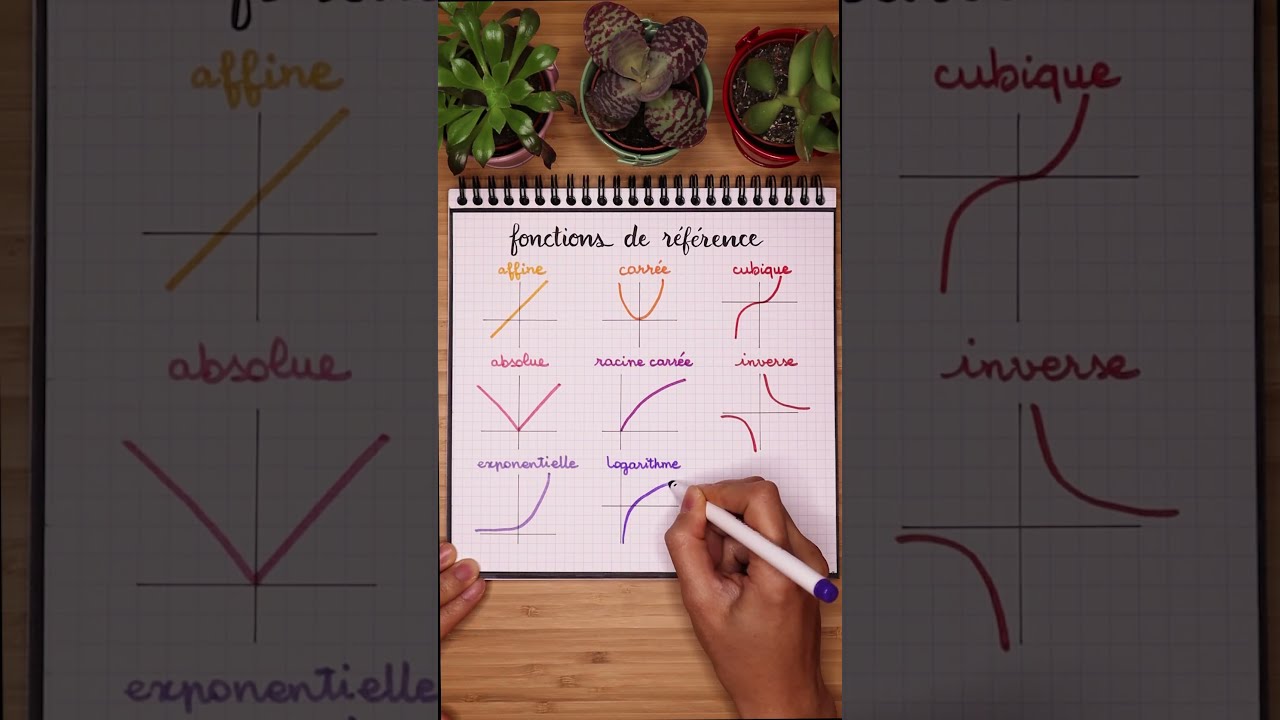 fonctions de référence
affine carrée cubique
absolue racine carrée inverse
exponentielle logarithme
affine
absolue
exponentielle
cubique
inverse